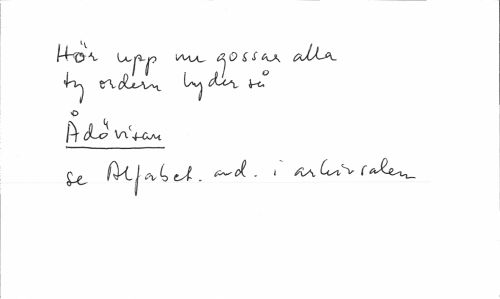 Hör upp nu gossar alla
ty ordern lyder så
Ådövisan
se Alfabet. avd. i arkivsalen